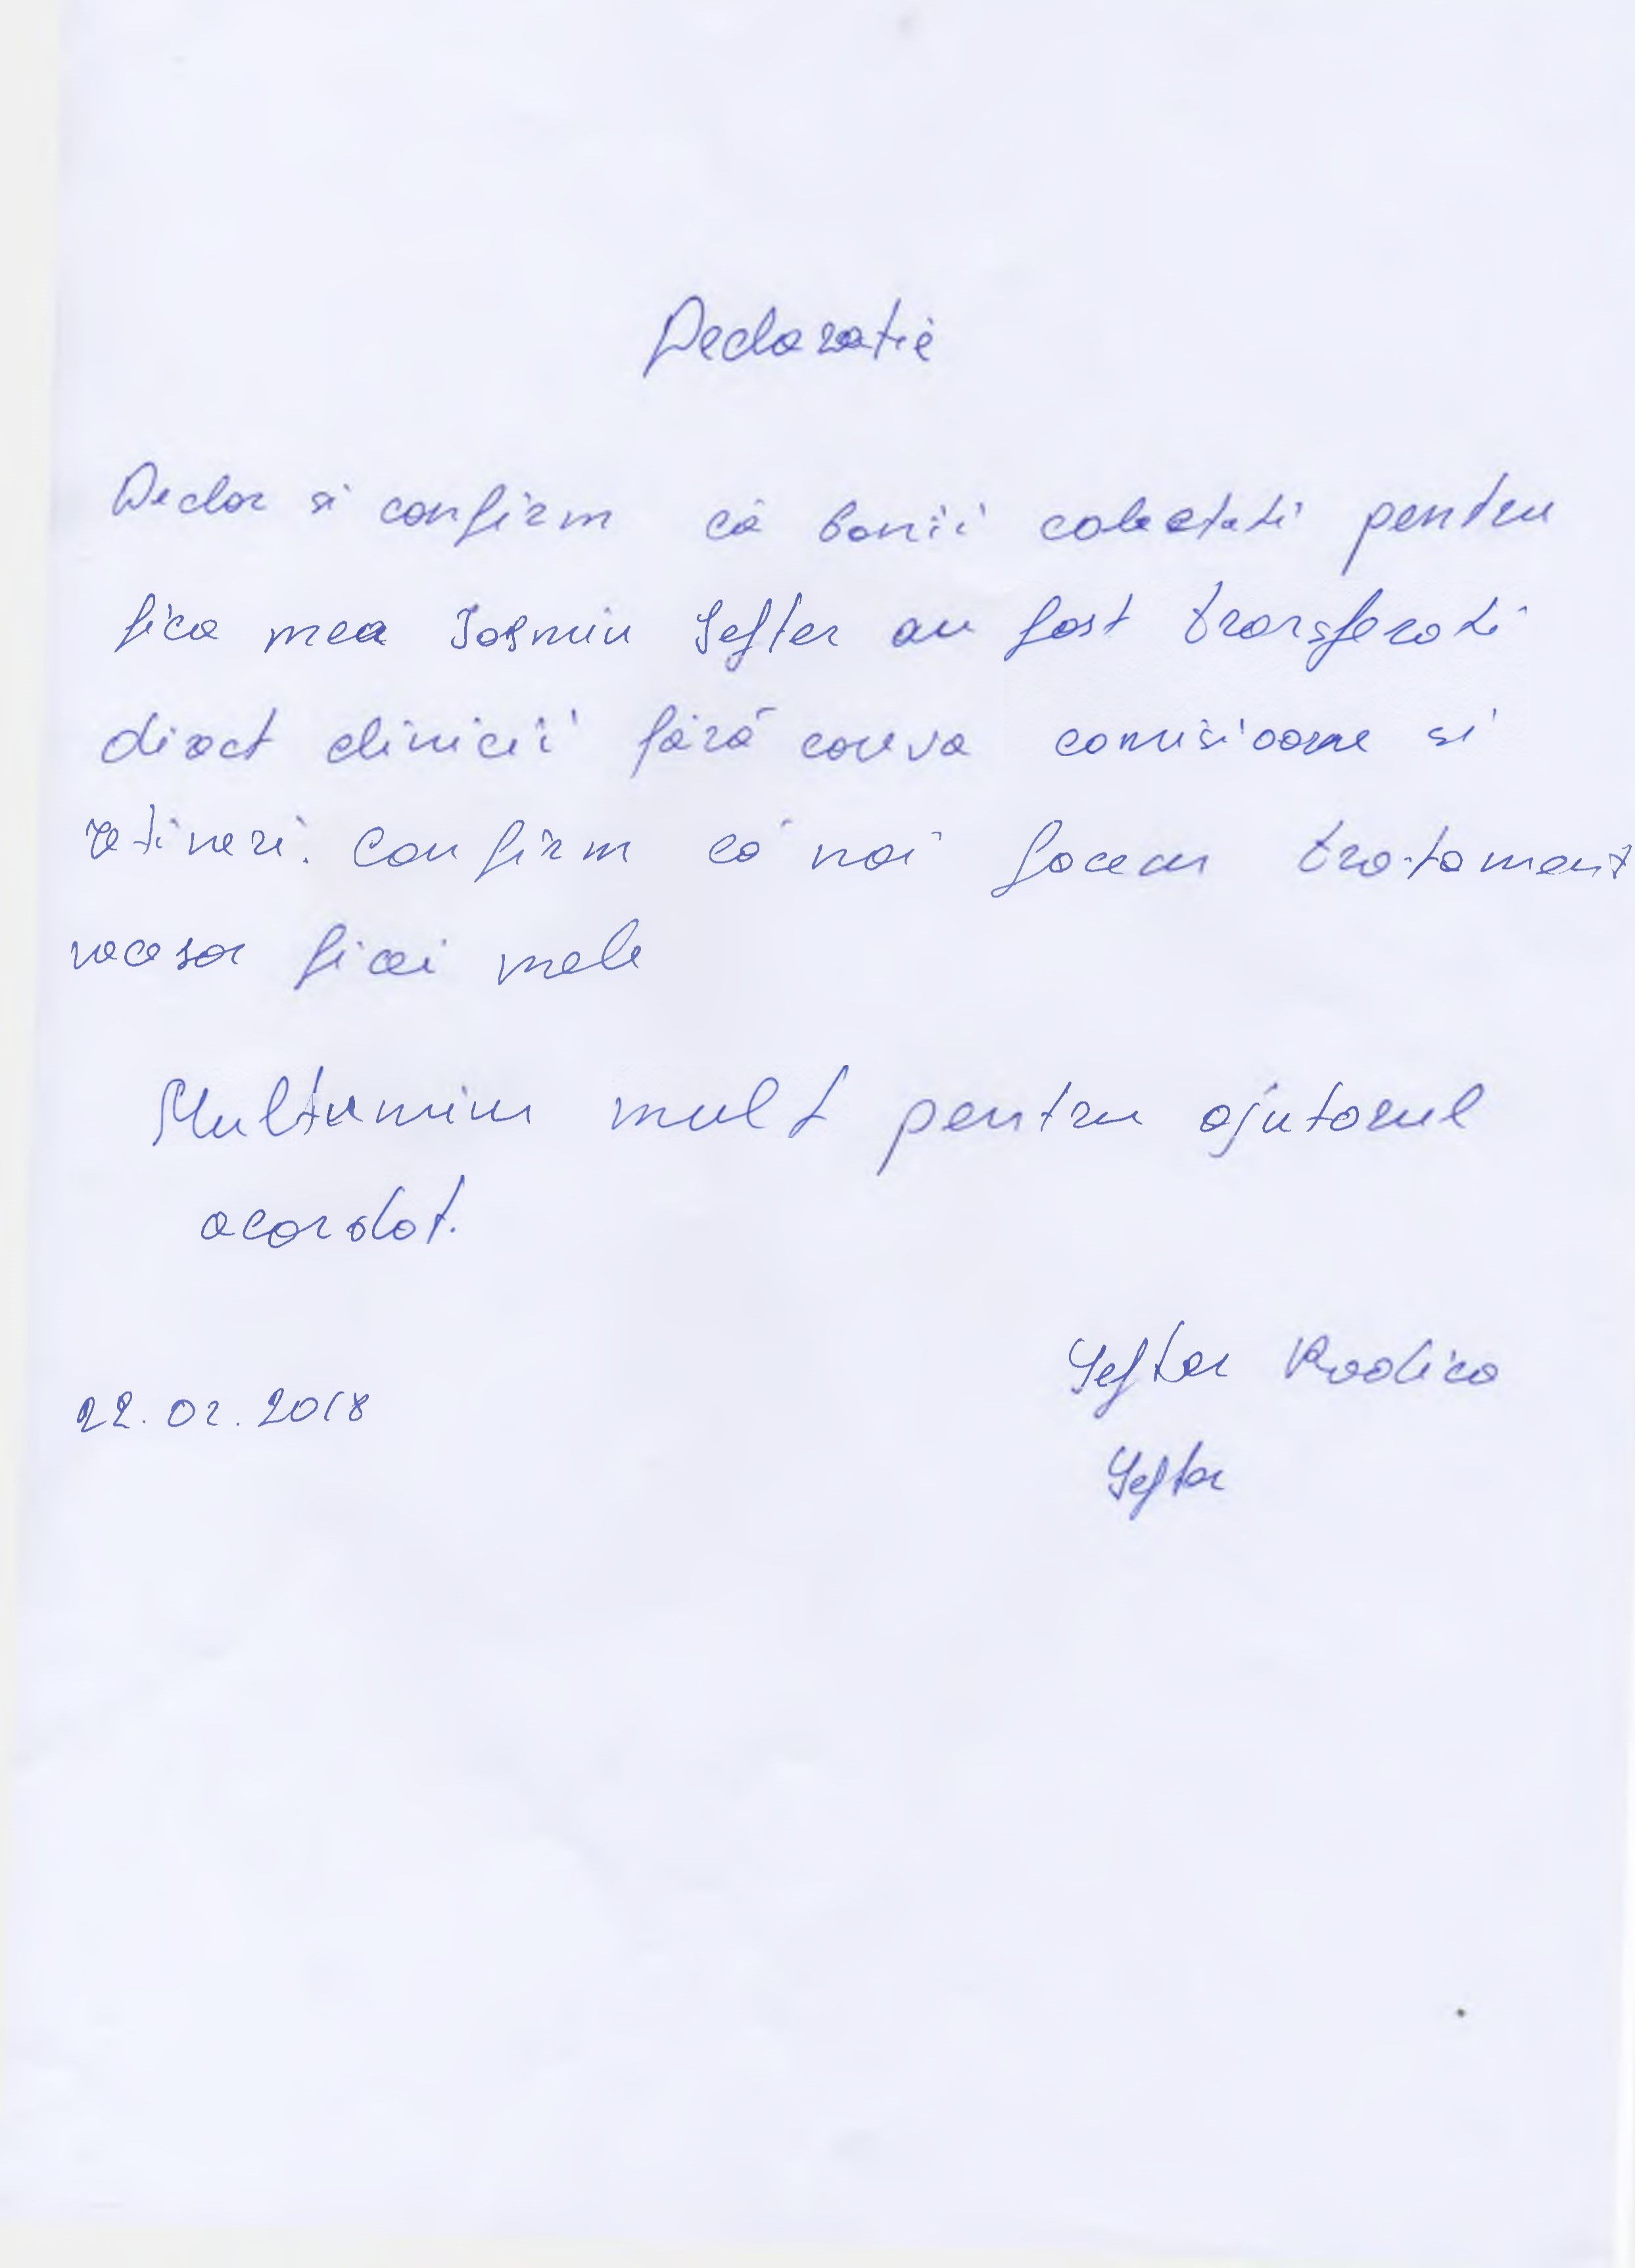 Declaratie
Declar si confirm că banii colectati pentru
fica mea Iasmin Sefter au fost transferati
direct clinicii fără careva comisioane si
retineri. Confirm că noi facem tratament
necesar ficei mele
Multumim mult pentru ajutorul
acordat.
Sefter Rodica
22.02.2018
Sefter